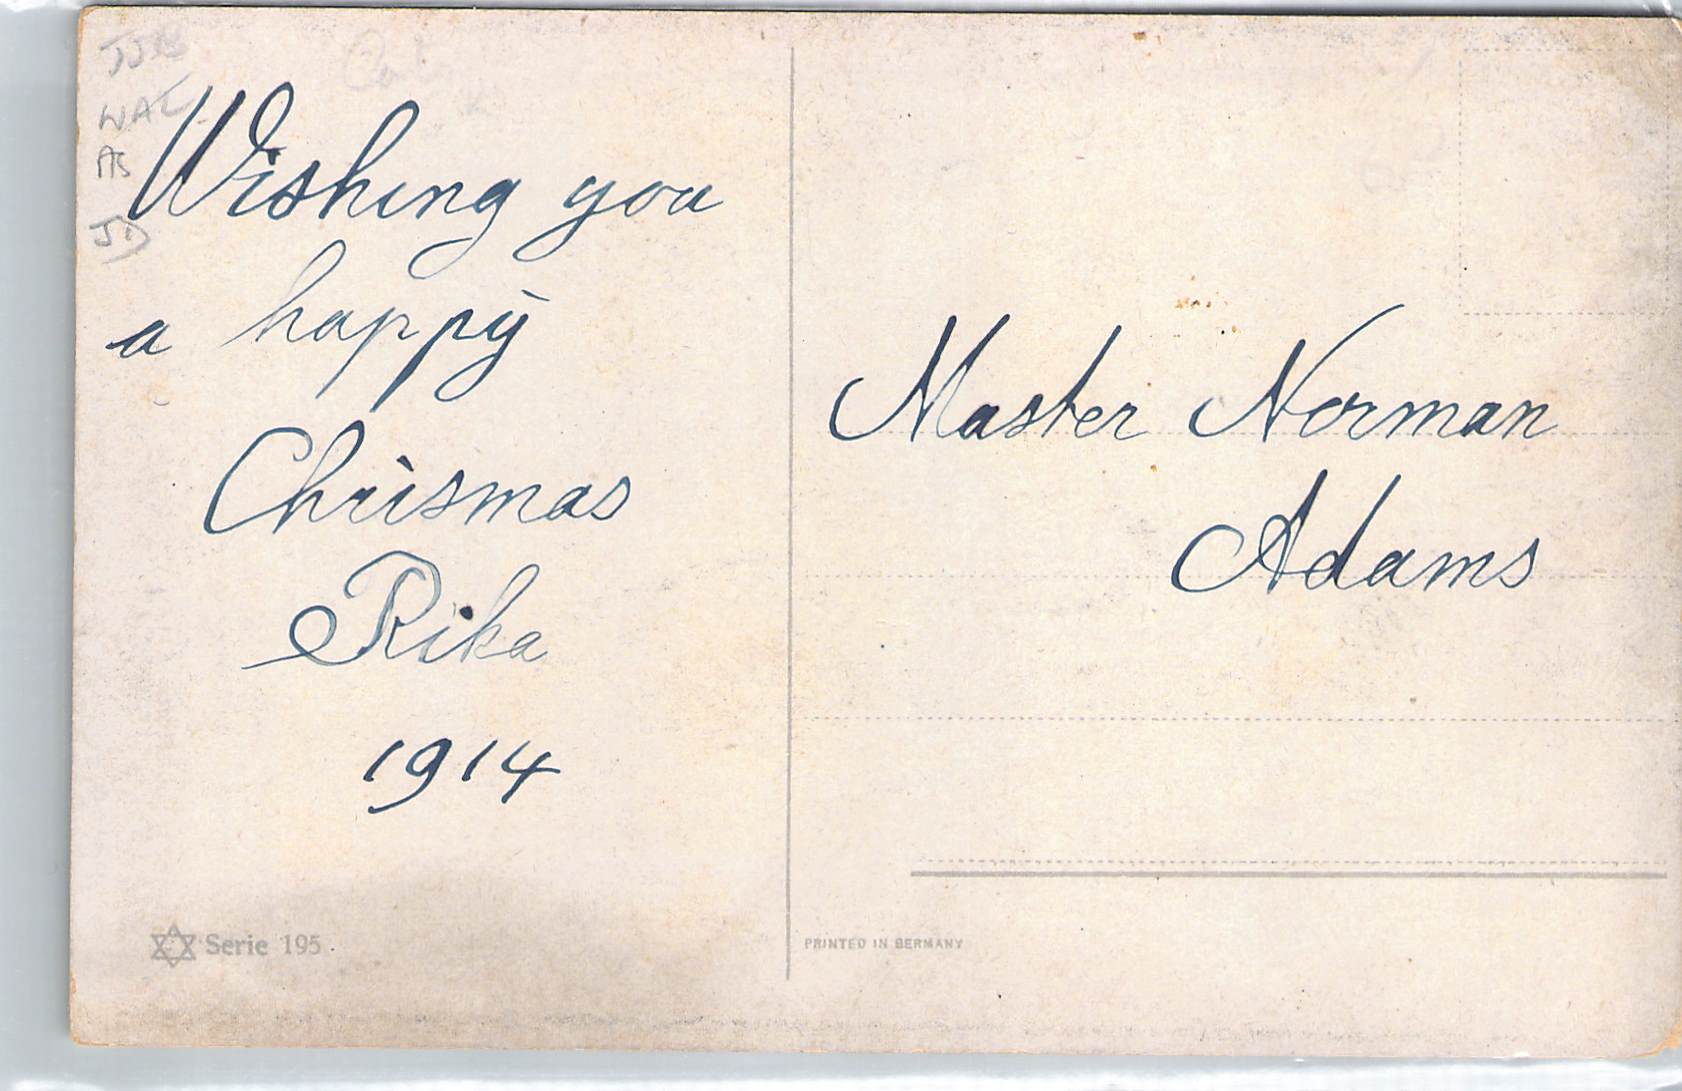 Wishing you
a happy
Chrismas
Rika
1914
Master Norman
Adams
Serie 195
PRINTED IN GERMANY
JD